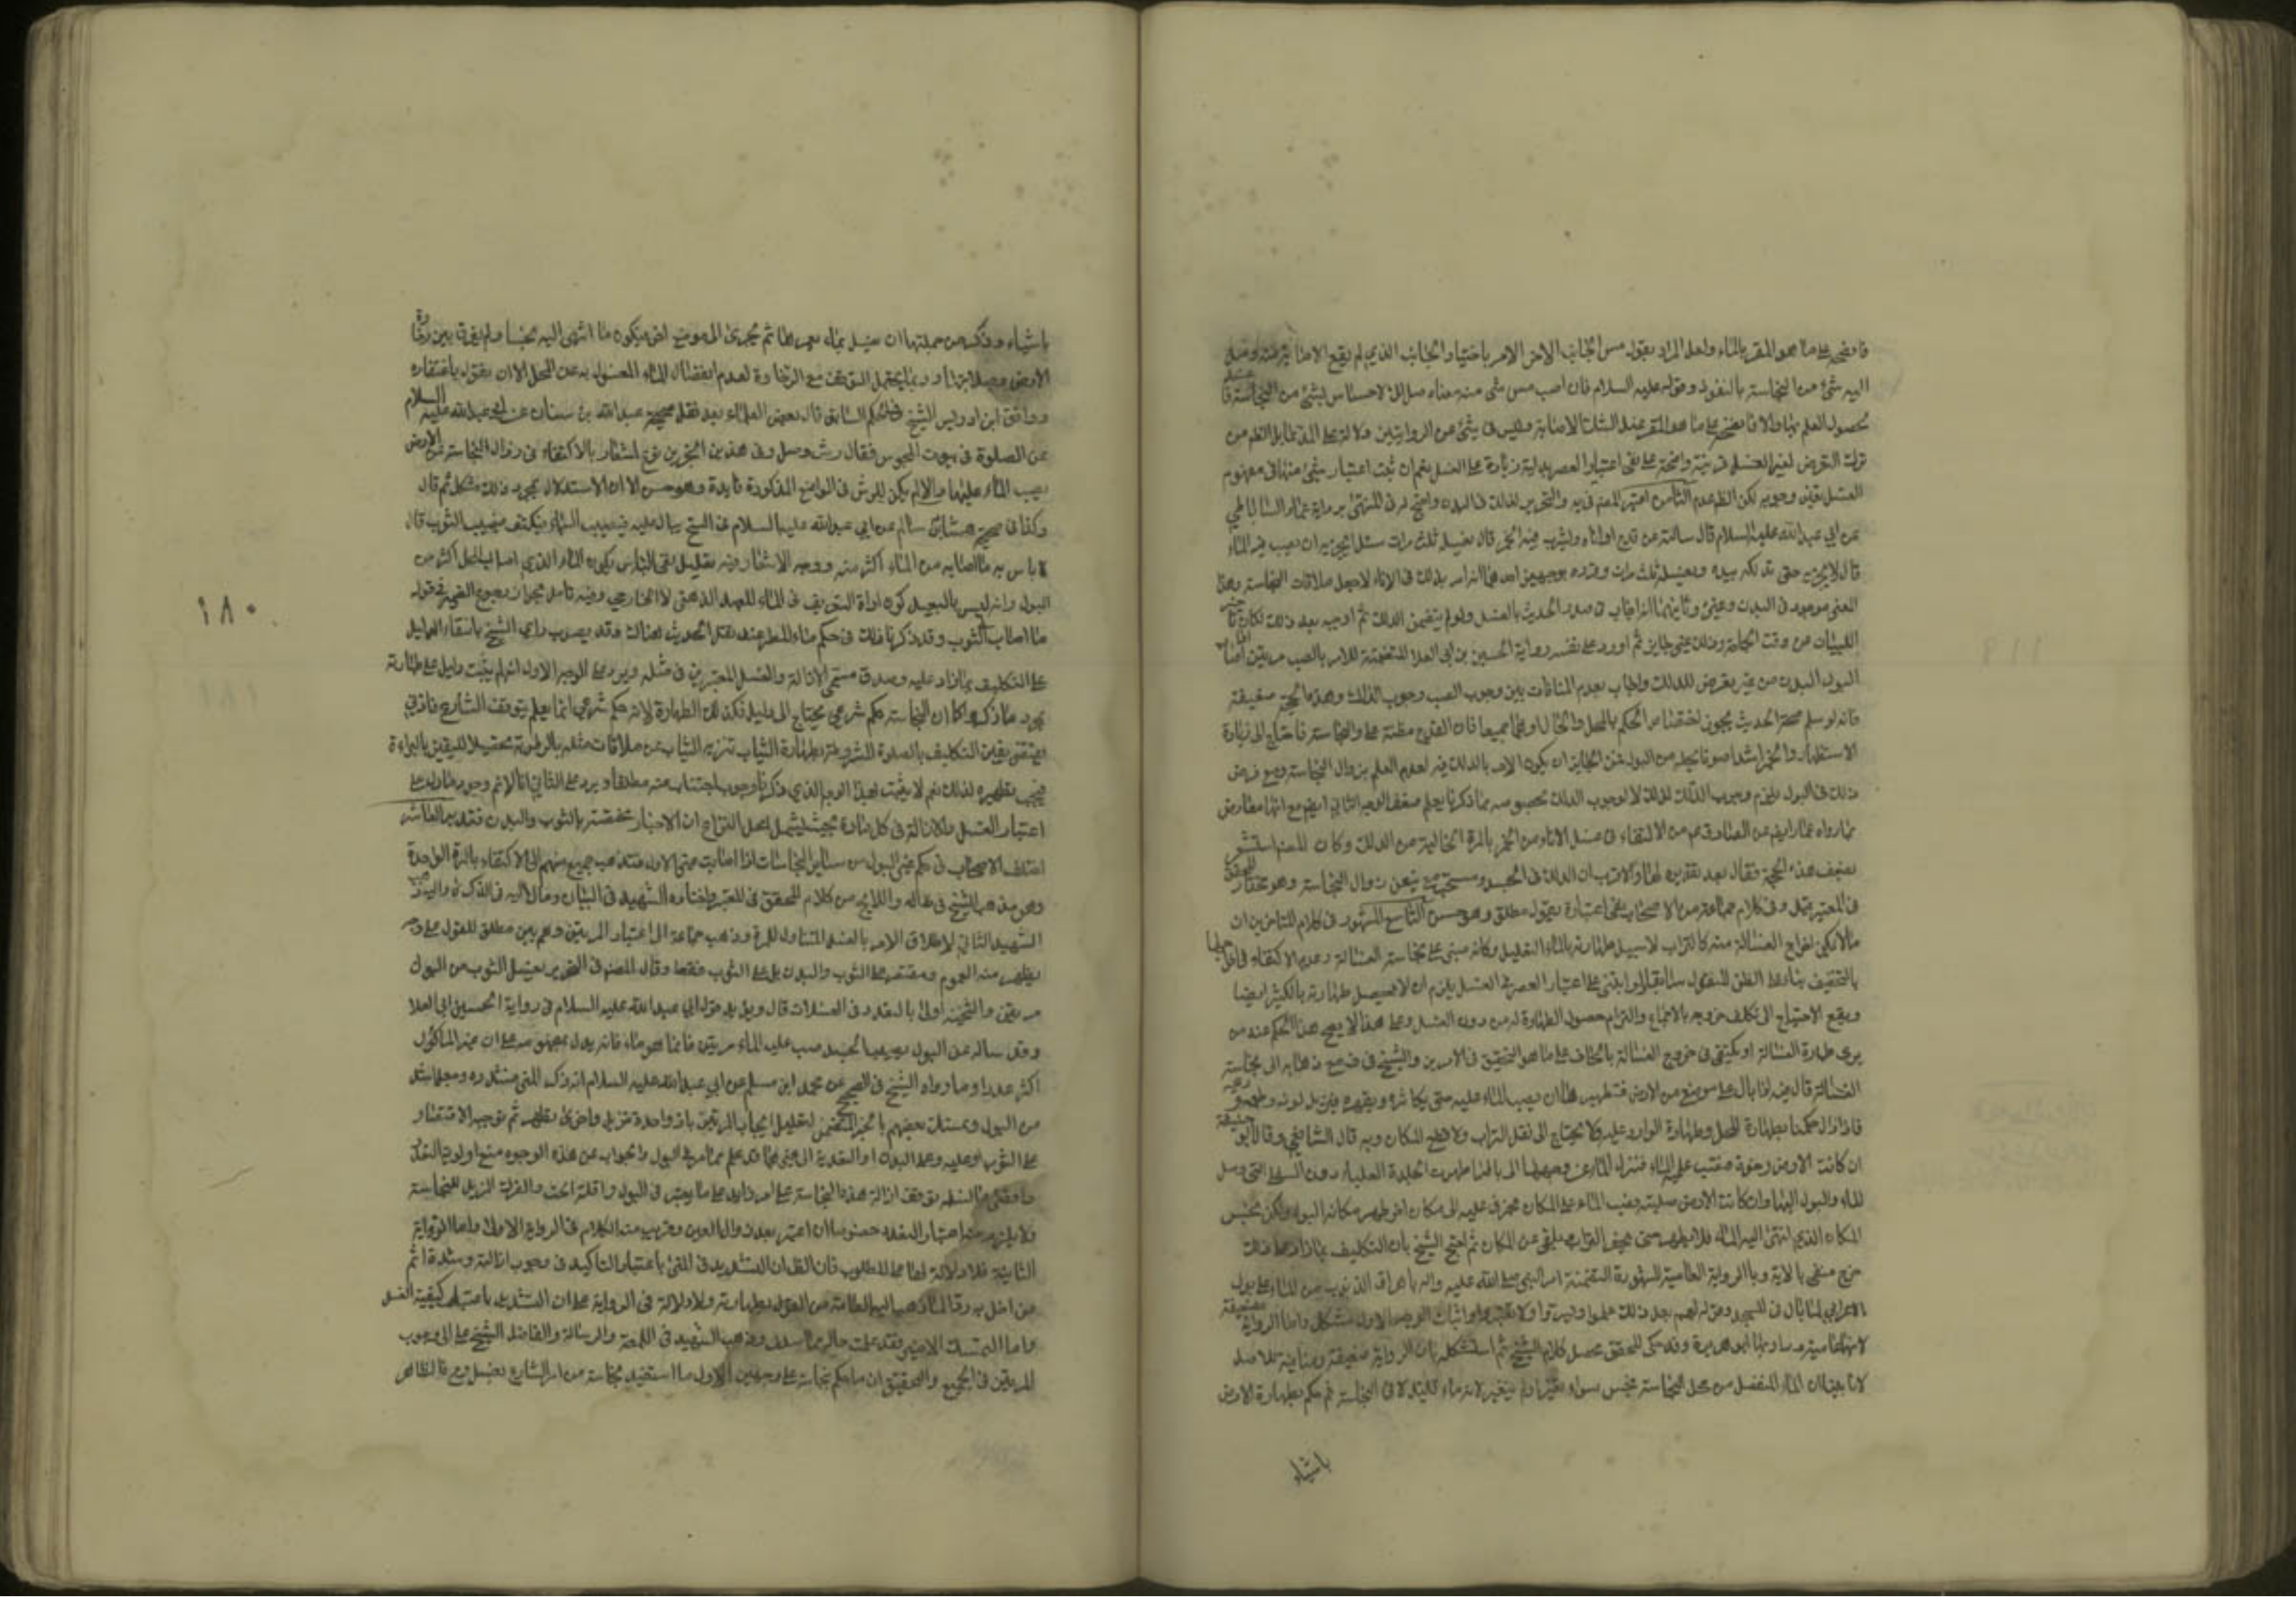 فانضحه على ما هو المقر بالماء ولعل المراد بقوله مس الجانب الاخر الامر باختيار الجانب الذي لم يقع الاصابة
اليه شيء من النجاسة بالنفوذ وقوله عليه السلام فان اصب مس شيء منه معناه حصل لك الاحساس بشيء من النجاسة
لحصول العلم بها والا فانضحه على ما هو المقر عند الشك في الاصابة وليس في شيء من الروايتين دلالة على الدق
ترك التعرض لغير الغسل قرينة واضحة على نفي اعتبار العصر بداية زيادة على الغسل نعم ان ثبت اعتبار شيء منها في مفهوم
الغسل تعين وجوبه لكن الظ عدم الثامن اعتبر المصنف في يه والتحرير الدلك في البدن واحتج له في المنتهى برواية عمار الساباطي
عن ابي عبد الله عليه السلام قال سالته عن قدح او اناء يشرب فيه الخمر قال يغسله ثلث مرات سئل ايجزيه ان يصب فيه الماء
قال لا يجزيه حتى يدلكه بيده ويغسله ثلث مرات وقرره بوجهين احدهما انه امر بذلك في الاناء لاجل ملاقات النجاسة وهذا
المعنى موجود في البدن وغيره وثانيهما انه اجاب في صدر الحديث بالغسل ولو لم يتضمن الدلك ثم اوجبه بعد ذلك لكان
البيان عن وقت الحاجة وذلك غير جايز ثم اورد على نفسه رواية الحسين بن ابي العلا المتضمنة للامر بالصب مرتين
البول البدن من غير تعرض للدلك واجاب بعدم المنافات بين وجوب الصب وجوب الدلك وهذه الحجة ضعيفة
فانه لو سلم صحة الحديث يجوز اختصاص الحكم بالمحل والحال او بهما جميعا فان القدح مظنة علوق النجاسة فاحتاج الى زيادة
الاستظهار والخمر اشد
ذلك في البول يلزم وجوب الدلك لذلك لا لوجوب الدلك بخصوصه بما ذكرنا يعلم ضعف الوجه الثاني ايض مع انها معارض
بما رواه عمار ايض عن الصادق ع من الاكتفاء في غسل الاناء من الخمر بالمرة الخالية من الدلك وكان المصنف استشعر
بضعف هذه الحجة فقال بعد تقريره لها والاقرب ان الدلك في الجسد مستحب يتيقن زوال النجاسة وهو مختار المحقق
في المعتبر وفي كلام جماعة من الاصحاب نفي اعتباره بقول مطلق وهو حسن التاسع المشهور في كلام المتاخرين ان
ما لا يمكن اخراج الغسالة منه كالتراب لا سبيل طهارته بالماء القليل وكانه مبني على نجاسة الغسالة وعدم الاكتفاء
بالتجفيف
ويقع الاحتياج الى تكلف خروجه بالاجماع والتزام حصول الطهارة له من دون الغسل وعلى هذا لا يصح هذا الحكم عند من
يرى طهارة الغسالة او يكتفي في خروج الغسالة بالجفاف على ما هو التحقيق في الامرين والشيخ في ف مع ذهابه الى نجاسة
الغسالة قال فيه اذا بال على موضع من الارض فتطهيره ان يصب الماء عليه حتى يكاثره ويقهره فيزيل لونه وطعمه وريحه
فاذا زال حكمنا بطهارة المحل وطهارة الوارد عليه ولا يحتاج الى نقل التراب ولا قطع المكان وبه قال الشافعي وقال ابو حنيفة
ان كانت الارض رخوة فصب عليه الماء فنزل الماء عن وجهها الى باطنها طهرت الجلدة العليا دون السفلى التي وصل
الماء والبول اليها وان كانت الارض صلبة وصب الماء على المكان فجرى عليه الى مكان اخر طهر مكان البول ولكن نجس
المكان الذي انتهى اليه الماء فلا يطهر حتى يحفر التراب ويلقى عن المكان ثم احتج الشيخ بان التكليف بما زاد على ذلك
حرج منفي بالاية وبالرواية العامية المشهورة المتضمنة امر النبي صلى الله عليه واله باهراق الذنوب من الماء على بول
الاعرابي لما بال في المسجد وقوله لهم بعد ذلك علموا ويسروا ولا تعسروا واثبات الوجه الاول مشكل واما الرواية فضعيفة
لانها عامية رواها ابو هريرة وقد حكى المحقق محصل كلام الشيخ ثم استشكله بان الرواية ضعيفة ومنافية للاصل
لانا بينا ان الماء المنفصل من محل النجاسة نجس سواء تغير او لم يتغير لانه ماء قليل لاقى النجاسة ثم حكم بطهارة الارض
باشياء
باشياء وذكر من جملتها ان يغسل بماء يغمرها ثم يجري الى موضع اخر فيكون ما انتهى اليه نجسا ولم يفرق بين رخاوة
الارض وصلابتها وربما يحتمل التوقف مع الرخاوة لعدم انفصال الماء المغسول به عن المحل الا ان يقول باغتفاره
ووافق ابن ادريس الشيخ في الحكم السابق قال بعض العلماء بعد نقل صحيحة عبد الله بن سنان عن ابي عبد الله عليه السلام
عن الصلوة في بيوت المجوس فقال رش وصل وفي هذين الخبرين نوع اشعار بالاكتفاء في زوال النجاسة عن الارض
بصب الماء عليها والا لم يكن للرش في المواضع المذكورة فايدة وهو حسن الا ان الاستدلال بمجرد ذلك مشكل ثم قال
وكذا في صحيحة هشام بن سالم عن ابي عبد الله عليه السلام في السطح يبال عليه فيصيبه السماء فيكف فيصيب الثوب قال
لا باس به ما اصابه من الماء اكثر منه ووجه الاشعار فيه تعليل نفي الباس بكون الماء الذي اصاب المحل اكثر من
البول وانه ليس بالبعيد كون اداة التعريف في الماء للعهد الذهني لا الخارجي وفيه تامل لجواز رجوع الضمير في قوله
ما اصاب الثوب وقد ذكرنا ذلك في حكم ماء المطر عند نقل الحديث هناك وقد يصوب راي الشيخ بانتفاء الدليل
على التكليف بما زاد عليه وصدق مسمى الازالة والغسل المعتبرين في مثله ويرد على الوجه الاول انه لم يثبت دليل على طهارته
بمجرد ما ذكر وكما ان النجاسة حكم شرعي يحتاج الى دليل فكذلك الطهارة لانه حكم شرعي انما يعلم بتوقف الشارع فاذن
يقتضي يقين التكليف بالصلوة المشروطة بطهارة الثياب تنزيه الثياب عن ملاقات مثله بالرطوبة تحصيلا لليقين بالبراءة
فيجب تطهيره لذلك نعم لا يثبت بهذا الوجه الذي ذكرنا وجوب اجتنابه منه مطلقا ويرد على الثاني انا لا نم وجود ما دل على
اعتبار الغسل والازالة في كل مادة بحيث يشمل محل النزاع اذ الاخبار مختصة بالثوب والبدن فتدبر العاشر
اختلف الاصحاب في حكم غير البول من سائر النجاسات اذا اصابت غير الاول فذهب جمع منهم الى الاكتفاء بالمرة الواحدة
وهو مذهب الشيخ في ط واللايح من كلام المحقق في المعتبر واختاره الشهيد في البيان ومال اليه في الذكرى واليه ذهب
الشهيد الثاني لاطلاق الامر بالغسل المتناول للمرة وذهب جماعة الى اعتبار المرتين وهم بين مطلق للقول على وجه
يظهر منه العموم ومقتصر على الثوب والبدن بل على الثوب فقط وقال المصنف في التحرير يغسل الثوب من البول
مرتين والثخينة اولى بالتعدد في الغسلات قال ويؤيد قول ابي عبد الله عليه السلام في رواية الحسين ابي العلا
وقد ساله عن البول يصيب الجسد صب عليه الماء مرتين فانما هو ماء فانه يدل بمفهومه على ان غير الماء
اكثر عددا وما رواه الشيخ في الصحيح عن محمد ابن مسلم عن ابي عبد الله عليه السلام انه ذكر المني فشدده وجعله اشد
من البول وتمسك بعضهم بالخبر المتضمن لتعليل ايجاب المرتين بان واحدة تزيل واخرى تطهر ثم توجه الاقتصار
على الثوب او عليه وعلى البدن او التعدية الى غيرهما قد علم مما مر في البول والجواب عن هذه الوجوه منع اولوية التعدد
توقف ازالة هذه النجاسة على امر زايد على ما يعتبر في البول
ولا يلزم منه اعتبار التعدد خصوصا ان اعتبر بعد زوال العين وقريب منه الكلام في الرواية الاولى واما الرواية
الثانية فلا دلالة لها على المطلوب فان الظ ان التشديد في المني باعتبار التاكيد في وجوب ازالته وشدة اثم
من اخل به دفعا لما ذهب اليه العامة من القول بطهارته ولا دلالة في الرواية على ان التشديد باعتبار كيفية الغسل
واما التمسك الاخير فقد علمت حاله مما سلف وذهب الشهيد في اللمعة والرسالة والفاضل الشيخ على الى وجوب
المرتين في الجميع والتحقيق ان ما حكم بنجاسته على وجهين الاول ما استفيد نجاسته من امر الشارع بغسله وح فالظاهر
١٨٠